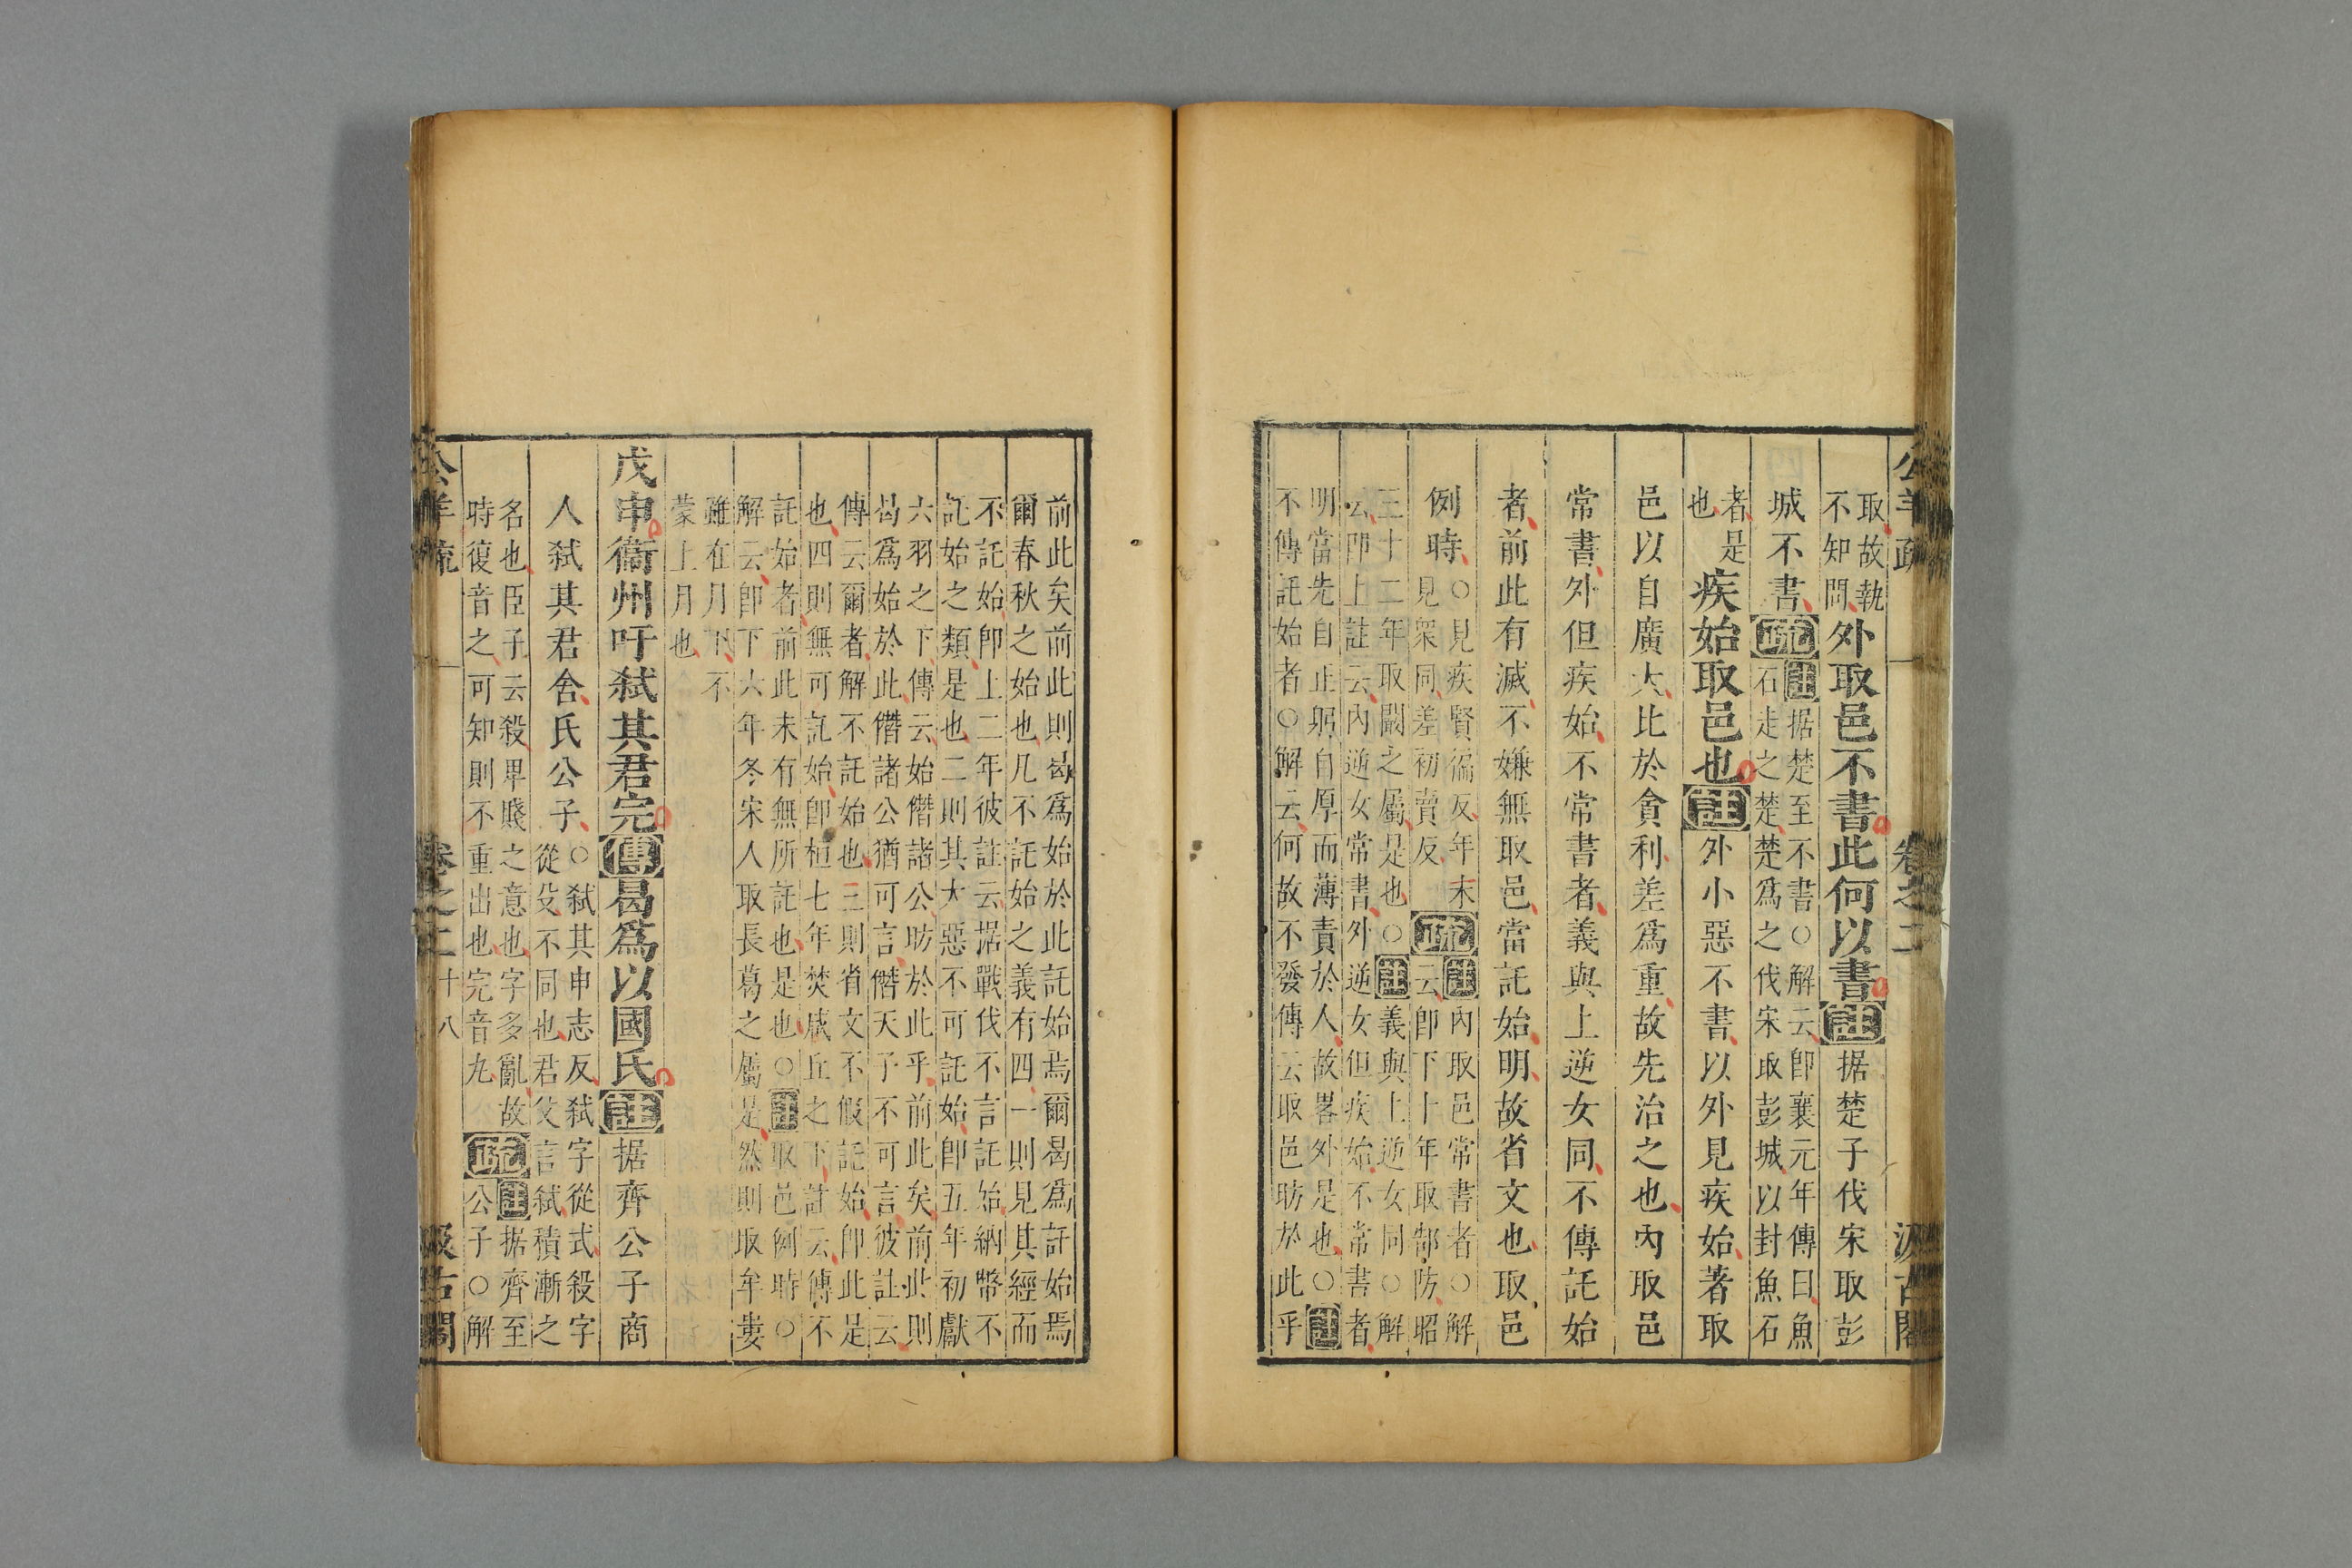 公羊疏 卷之二 汲古閣
取故執
不知問
外取邑不書此何以書註据楚子伐宋取彭
城不書疏
註据楚至不書○解云即襄元年傳曰魚
石走之楚楚爲之伐宋取彭城以封魚石
者是
也
疾始取邑也註外小惡不書以外見疾始著取
邑以自廣大比於貪利差爲重故先治之也內取邑
常書外但疾始不常書者義與上逆女同不傳託始
者前此有滅不嫌無取邑當託始明故省文也取邑
例時
○見疾賢徧反年末
見衆同差初賣反
疏
註內取邑常書者○解
云即下十年取郜防昭
三十二年取闞之屬是也○註義與上逆女同○解
云即上註云內逆女常書外逆女但疾始不常書者
明當先自正躬自厚而薄責於人故畧外是也○註
不傳託始者○解云何故不發傳云取邑昉於此乎
前此矣前此則曷爲始於此託始焉爾曷爲託始焉
爾春秋之始也凡不託始之義有四一則見其經而
不託始即上二年彼註云据戰伐不言託始納幣不
託始之類是也二則其大惡不可託始即五年初獻
六羽之下傳云始僭諸公昉於此乎前此矣前此則
曷爲始於此僭諸公猶可言僭天子不可言彼註云
傳云爾者解不託始也三則省文不假託始即此是
也四則無可託始即桓七年焚咸丘之下註云傳不
託始者前此未有無所託也是也○註取邑例時○
解云即下六年冬宋人取長葛之屬是然則取牟婁
雖在月下不
蒙上月也
戊申衞州吁弒其君完傳曷爲以國氏註据齊公子商
人弒其君舍氏公子
○弒其申志反弒字從式殺字
從殳不同也君父言弒積漸之
名也臣子云殺卑賤之意也字多亂故
時復音之可知則不重出也完音丸
疏
註据齊至
公子○解
公羊疏 卷之二 十八 汲古閣